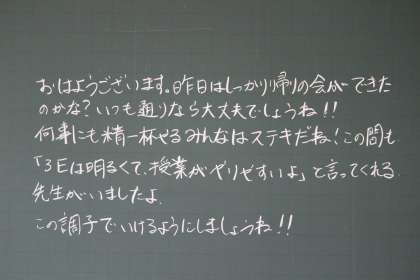 おはようございます。昨日はしっかり帰りの会ができた
のかな?いつも通りなら大丈夫でしょうね!!
何事にも精一杯やるみんなはステキだね!この間も
「3Eは明るくて、授業がやりやすいよ」と言ってくれる
先生がいましたよ.
この調子でいけるようにしましょうね!!